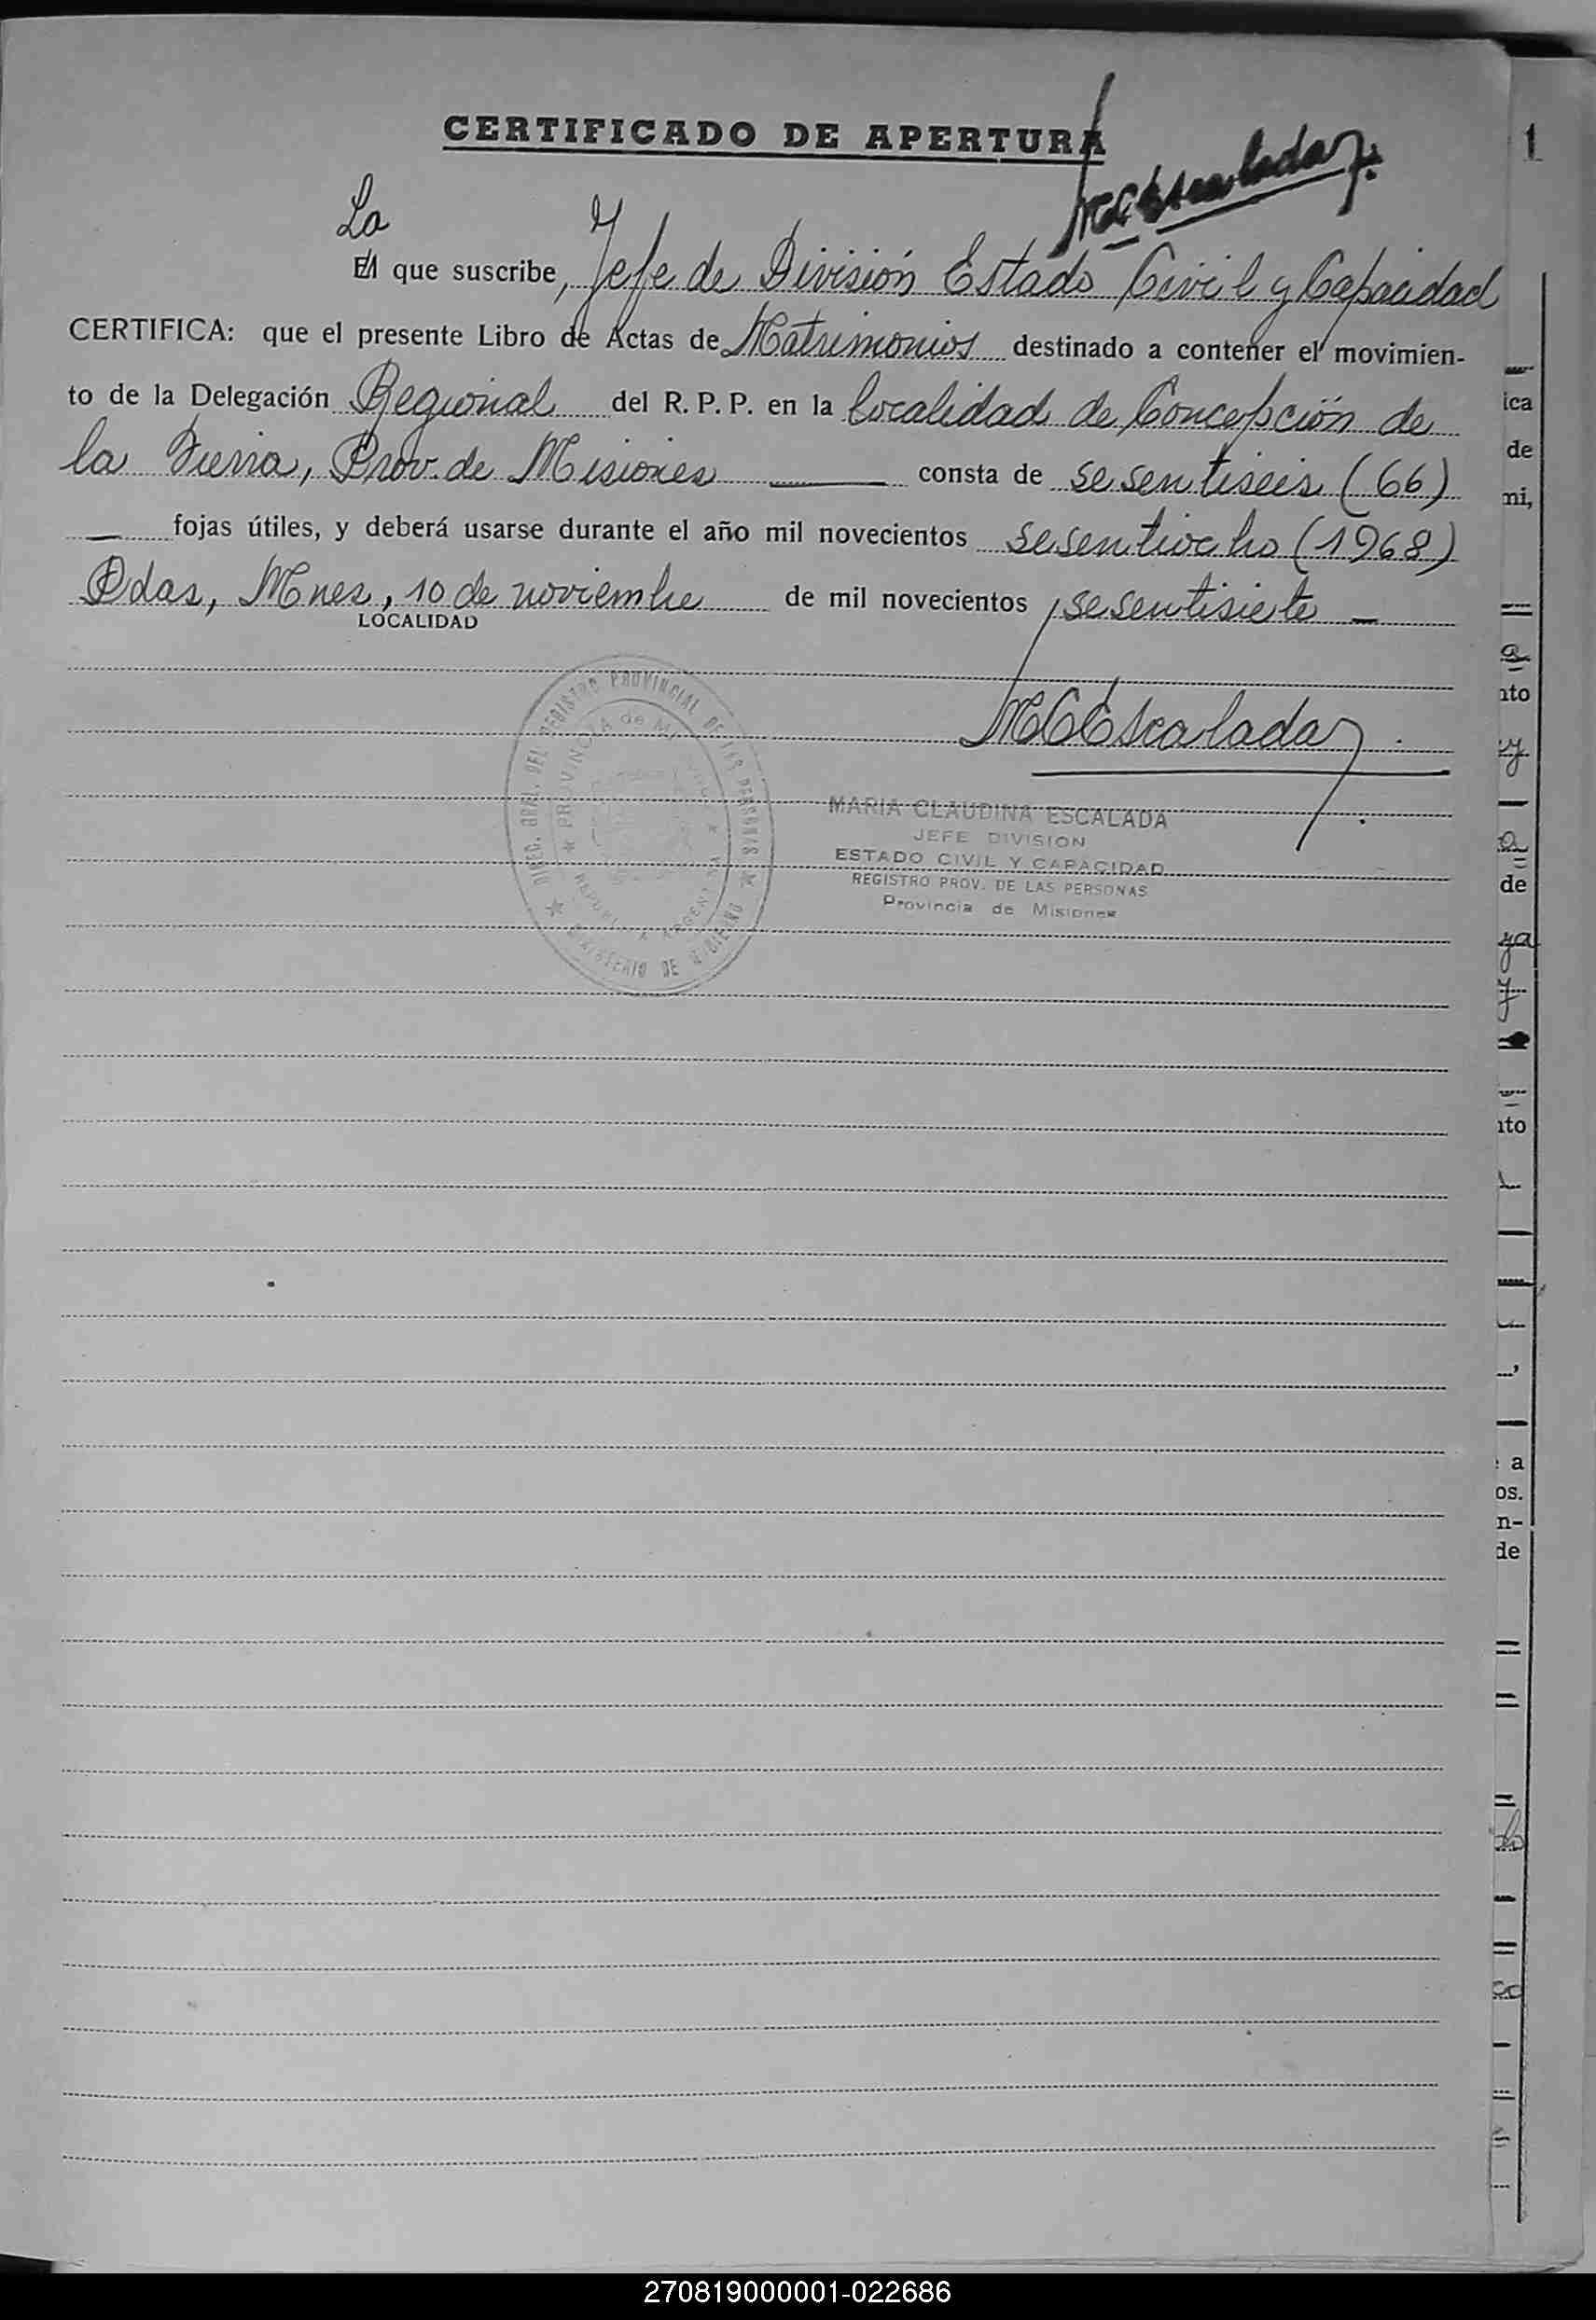 CERTIFICADO DE APERTURA
MCEscalada
1
La
El que suscribe, Jefe de División Estado Civil y Capacidad
CERTIFICA: que el presente Libro de Actas de Matrimonios destinado a contener el movimien-
to de la Delegación Regional del R. P. P. en la localidad de Concepción de
la Sierra, Prov. de Misiones consta de sesentiseis (66)
fojas útiles, y deberá usarse durante el año mil novecientos sesentiocho (1968)
Pdas, Mnes, 10 de noviembre de mil novecientos sesentisiete
LOCALIDAD
MCEscalada
DIREC. GRAL. DEL REGISTRO PROVINCIAL DE LAS PERSONAS
MINISTERIO DE GOBIERNO
PROVINCIA de MISIONES
REPUBLICA ARGENTINA
MARIA CLAUDINA ESCALADA
JEFE DIVISION
ESTADO CIVIL Y CAPACIDAD
REGISTRO PROV. DE LAS PERSONAS
Provincia de Misiones
ica
de
mi,
nto
y
de
ya
nto
a
os.
n-
de
270819000001-022686